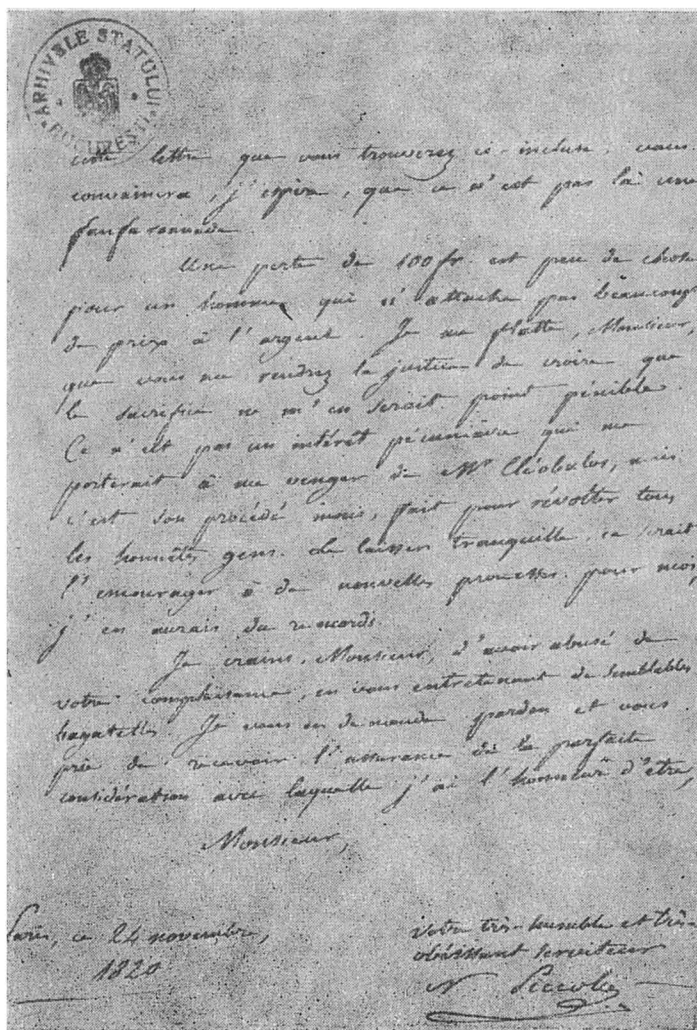 ARHIVELE STATULUI
BUCUREȘTI
cette lettre que vous trouverez ci-incluse, vous
convaincra, j'espère, que ce n'est pas là une
fanfaronnade.
Une perte de 100 fr. est peu de chose
pour un homme qui n'attache pas beaucoup
de prix à l'argent. Je me flatte, Monsieur,
que vous me rendrez la justice de croire que
le sacrifice ne m'en serait point pénible.
Ce n'est pas un intérêt pécuniaire qui me
porterait à me venger de Mr Cléobulos, mais
c'est son procédé, fait pour révolter tous
les honnêtes gens. Le laisser tranquille, ce serait
l'encourager à de nouvelles prouesses. pour moi,
j'en aurais du remords.
Je crains, Monsieur, d'avoir abusé de
votre complaisance, en vous entretenant de semblables
bagatelles. Je vous en demande pardon et vous
prie de recevoir l'assurance de la parfaite
considération avec laquelle j'ai l'honneur d'être,
Monsieur,
Paris, ce 24 novembre,
1820
votre très-humble et très-
obéissant serviteur
N Piccolos